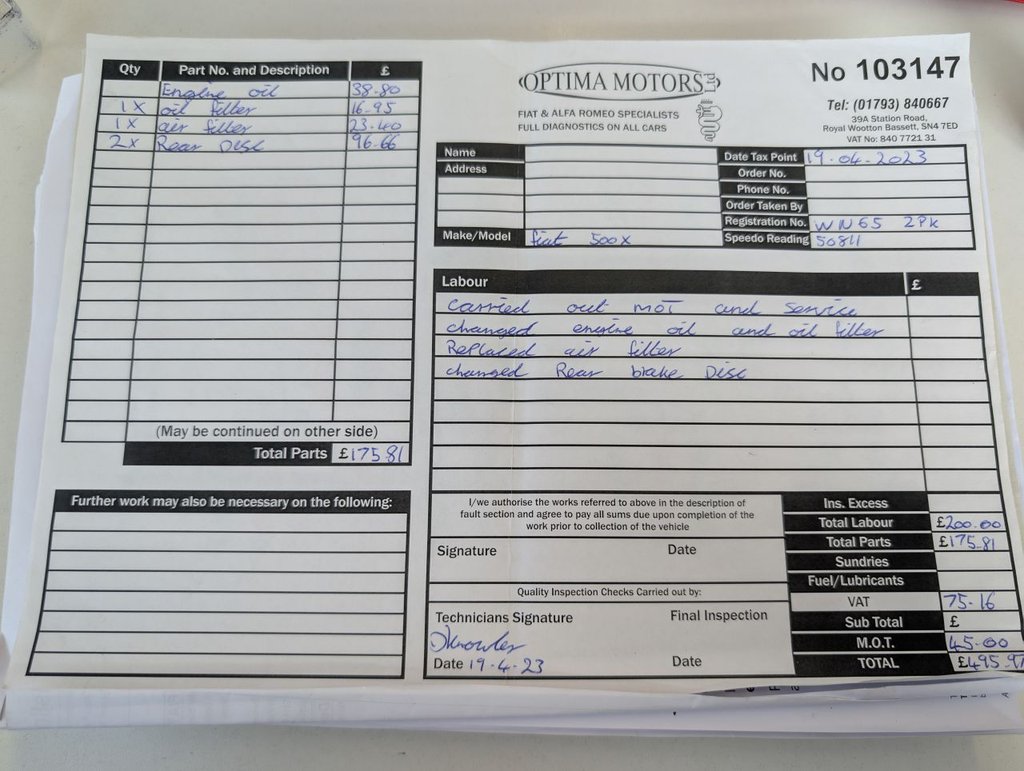 Qty Part No. and Description £
Engine oil 38.80
1x oil filter 16.95
1x air filter 23.40
2x Rear Disc 96.66
(May be continued on other side)
Total Parts £175.81
Further work may also be necessary on the following:
OPTIMA MOTORS
FIAT & ALFA ROMEO SPECIALISTS
FULL DIAGNOSTICS ON ALL CARS
No 103147
Tel: (01793) 840667
39A Station Road,
Royal Wootton Bassett, SN4 7ED
VAT No: 840 7721 31
Name
Address
Make/Model fiat 500x
Date Tax Point 19.04.2023
Order No.
Phone No.
Order Taken By
Registration No. WN65 2PK
Speedo Reading 50811
Labour £
carried out MOT and service
changed engine oil and oil filter
Replaced air filter
changed Rear brake Disc
I/we authorise the works referred to above in the description of
fault section and agree to pay all sums due upon completion of the
work prior to collection of the vehicle
Signature Date
Quality Inspection Checks Carried out by:
Technicians Signature Final Inspection
Date 19-4-23 Date
Ins. Excess
Total Labour £200.00
Total Parts £175.81
Sundries
Fuel/Lubricants
VAT 75.16
Sub Total £
M.O.T. 45.00
TOTAL £495.97